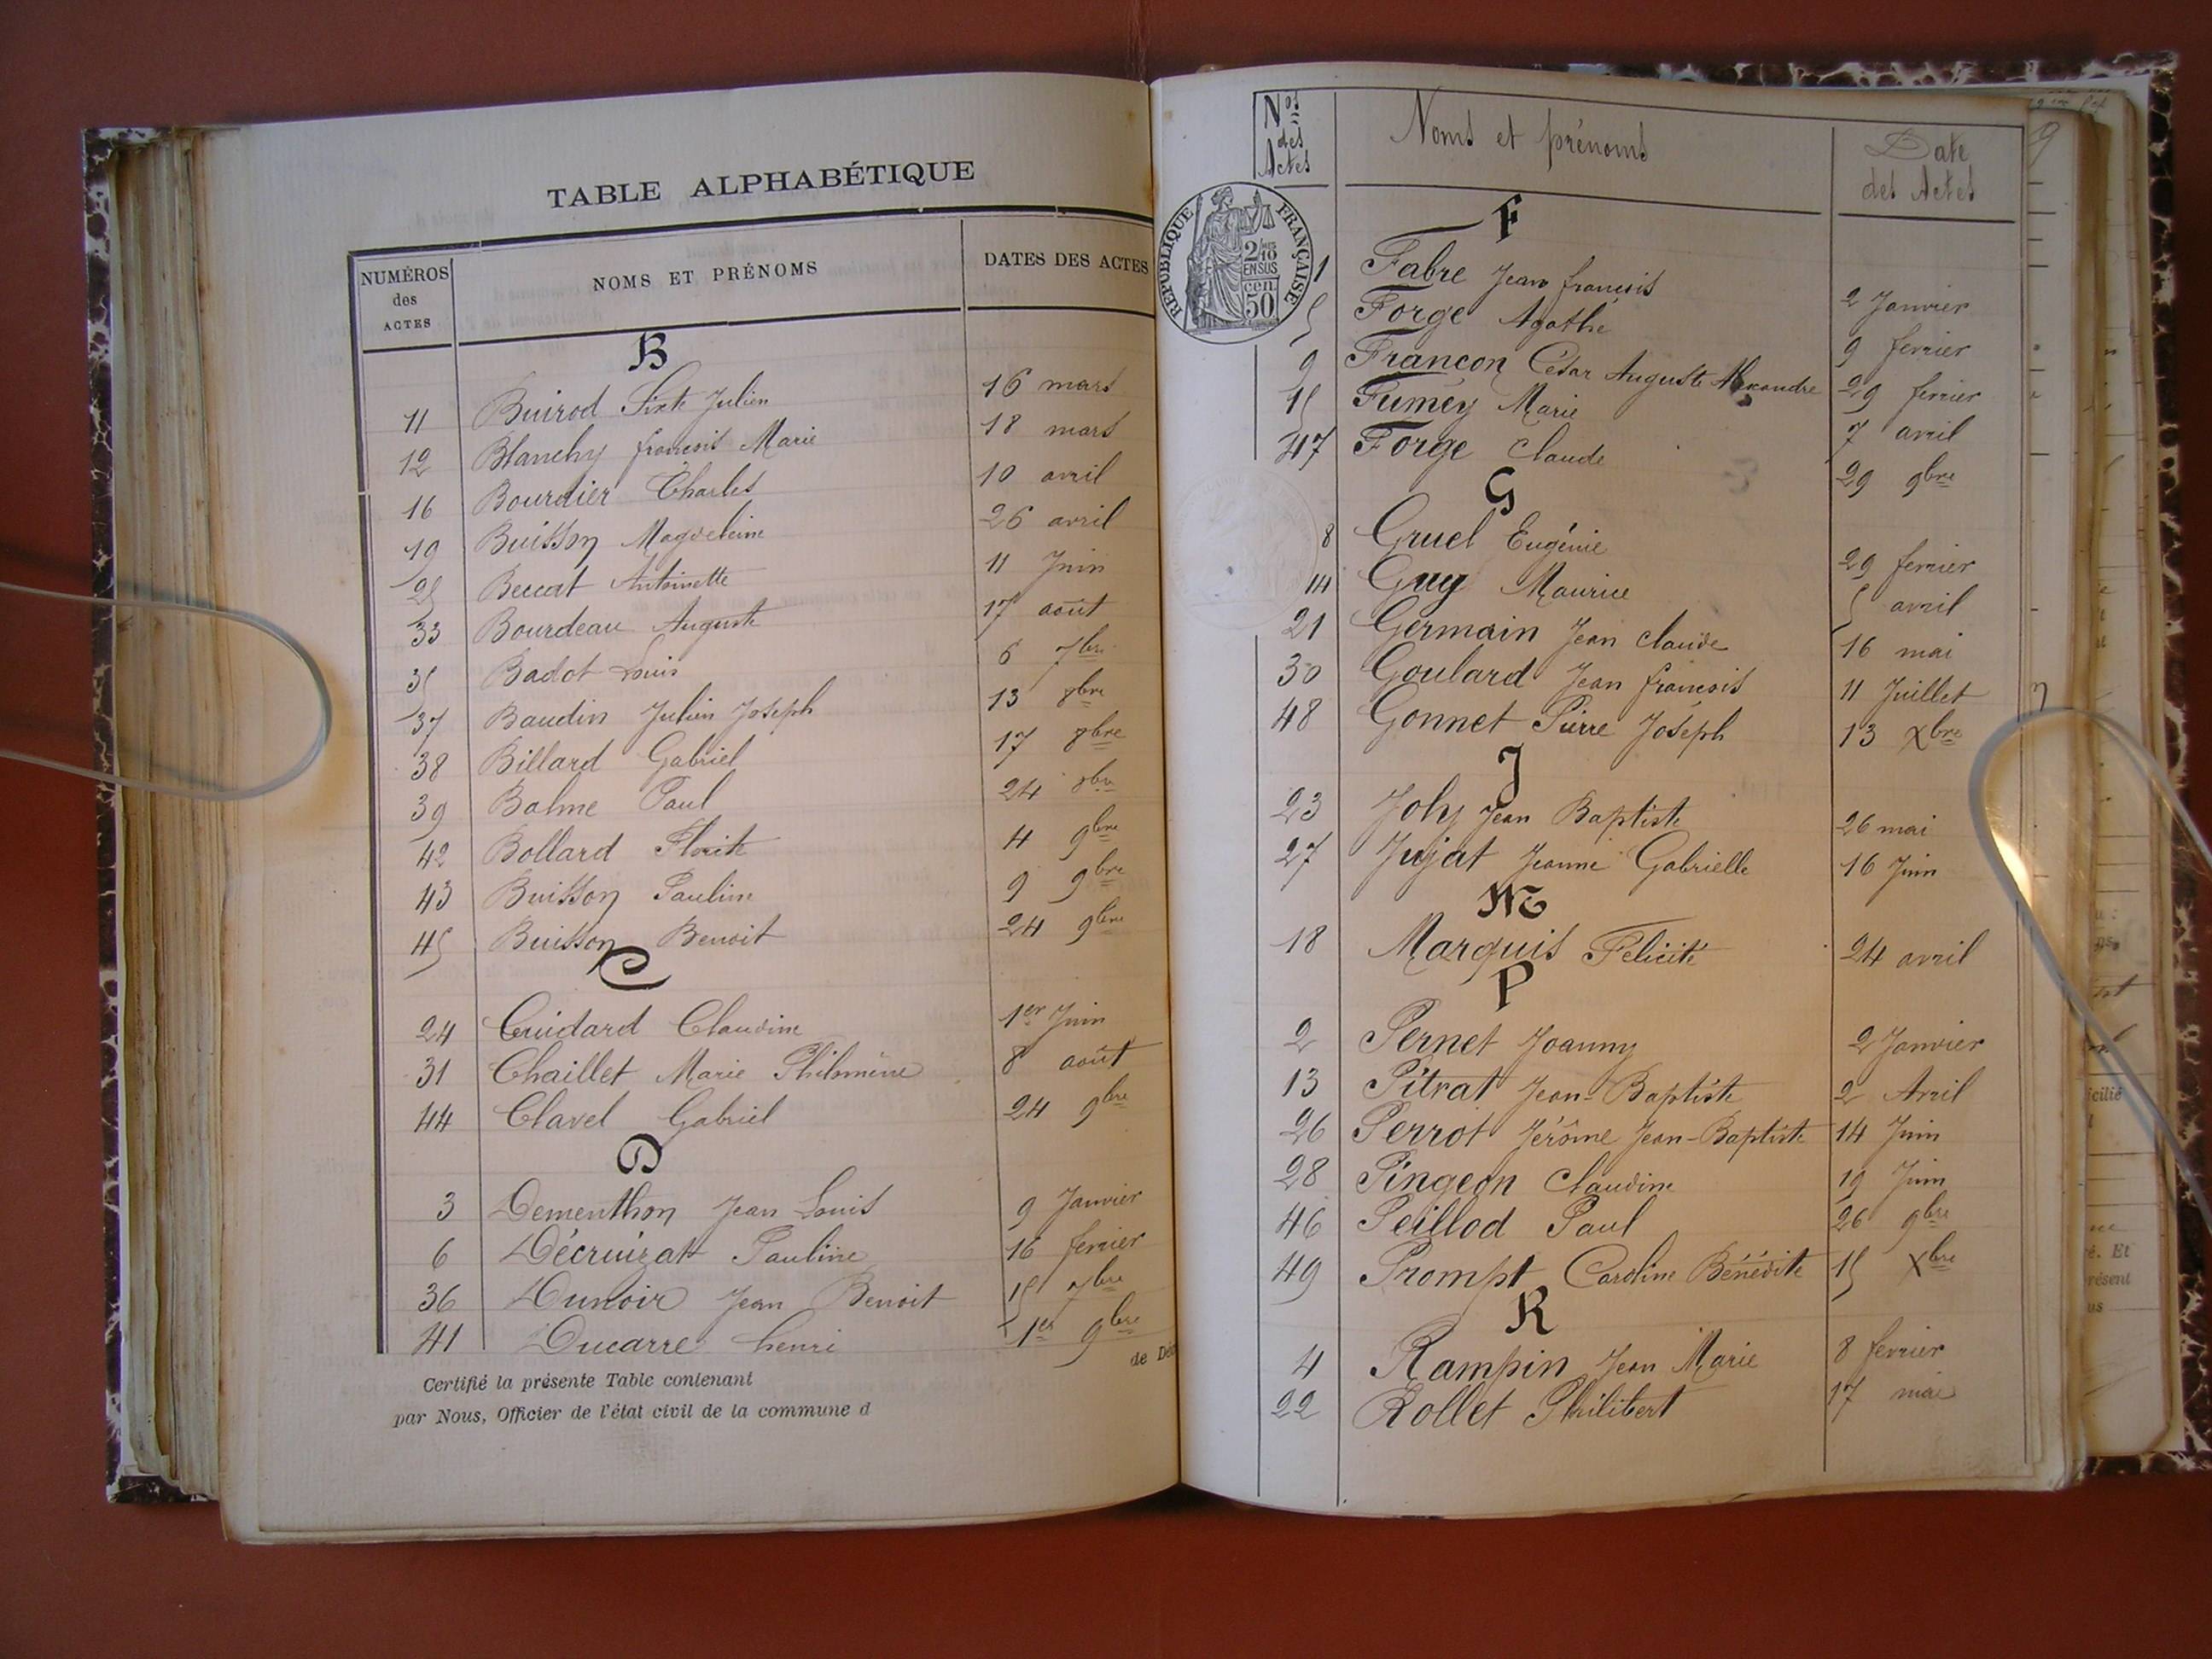 TABLE ALPHABÉTIQUE
NUMÉROS des ACTES NOMS ET PRÉNOMS DATES DES ACTES
B
11 Buirod Sixte Julien 16 mars
12 Blanchy françois Marie 18 mars
16 Bourdier Charles 10 avril
19 Buisson Magdeleine 26 avril
25 Beccat Antoinette 11 Juin
33 Bourdeau Auguste 17 août
35 Badot Louis 6 7bre
37 Baudin Julien Joseph 13 8bre
38 Billard Gabriel 17 8bre
39 Balme Paul 24 8bre
42 Bollard Florite 4 9bre
43 Buisson Pauline 9 9bre
45 Buisson Benoit 24 9bre
C
24 Cuidard Claudine 1er Juin
31 Chaillet Marie Philomène 8 août
44 Clavel Gabriel 24 9bre
D
3 Dementhon Jean Louis 9 Janvier
6 Décruizat Pauline 16 fevrier
36 Dunoir Jean Benoit 15 7bre
41 Ducarre henri 1er 9bre
de Déc
Certifié la présente Table contenant
par Nous, Officier de l'état civil de la commune d
Nos des Actes Noms et prénoms Date des Actes
RÉPUBLIQUE FRANÇAISE
2/10 EN SUS
cen. 50
F
1 Fabre Jean françois 2 Janvier
5 Forge Agathe 9 fevrier
9 Francon César Auguste Alexandre 29 fevrier
15 Fumey Marie 7 avril
47 Forge Claude 29 9bre
G
8 Gruel Eugénie 29 fevrier
14 Guy Maurice 5 avril
21 Germain Jean Claude 16 mai
30 Goulard Jean françois 11 Juillet
48 Gonnet Pierre Joséph 13 Xbre
J
23 Joly Jean Baptiste 26 mai
27 Jujat Jeanne Gabrielle 16 Juin
M
18 Marquis Félicité 24 avril
P
2 Pernet Joanny 2 Janvier
13 Pitrat Jean-Baptiste 2 Avril
26 Perrot Jérôme Jean-Baptiste 14 Juin
28 Pingeon Claudine 19 Juin
46 Peillod Paul 26 9bre
49 Prompt Caroline Bénédite 15 Xbre
R
4 Rampin Jean Marie 8 fevrier
22 Rollet Philibert 17 mai